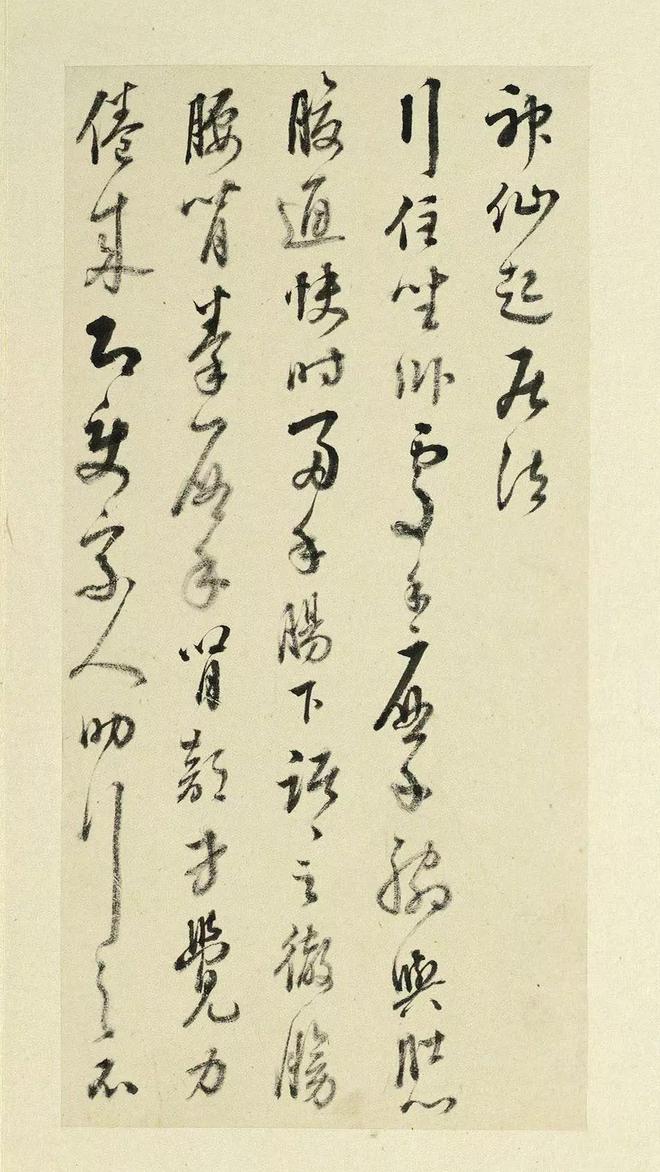 神仙起居法
行住坐卧處手摩脇與肚心
腹通快時兩手腸下踞〻之徹膀
腰背拳摩腎部才覺力
倦來即使家人助行之不